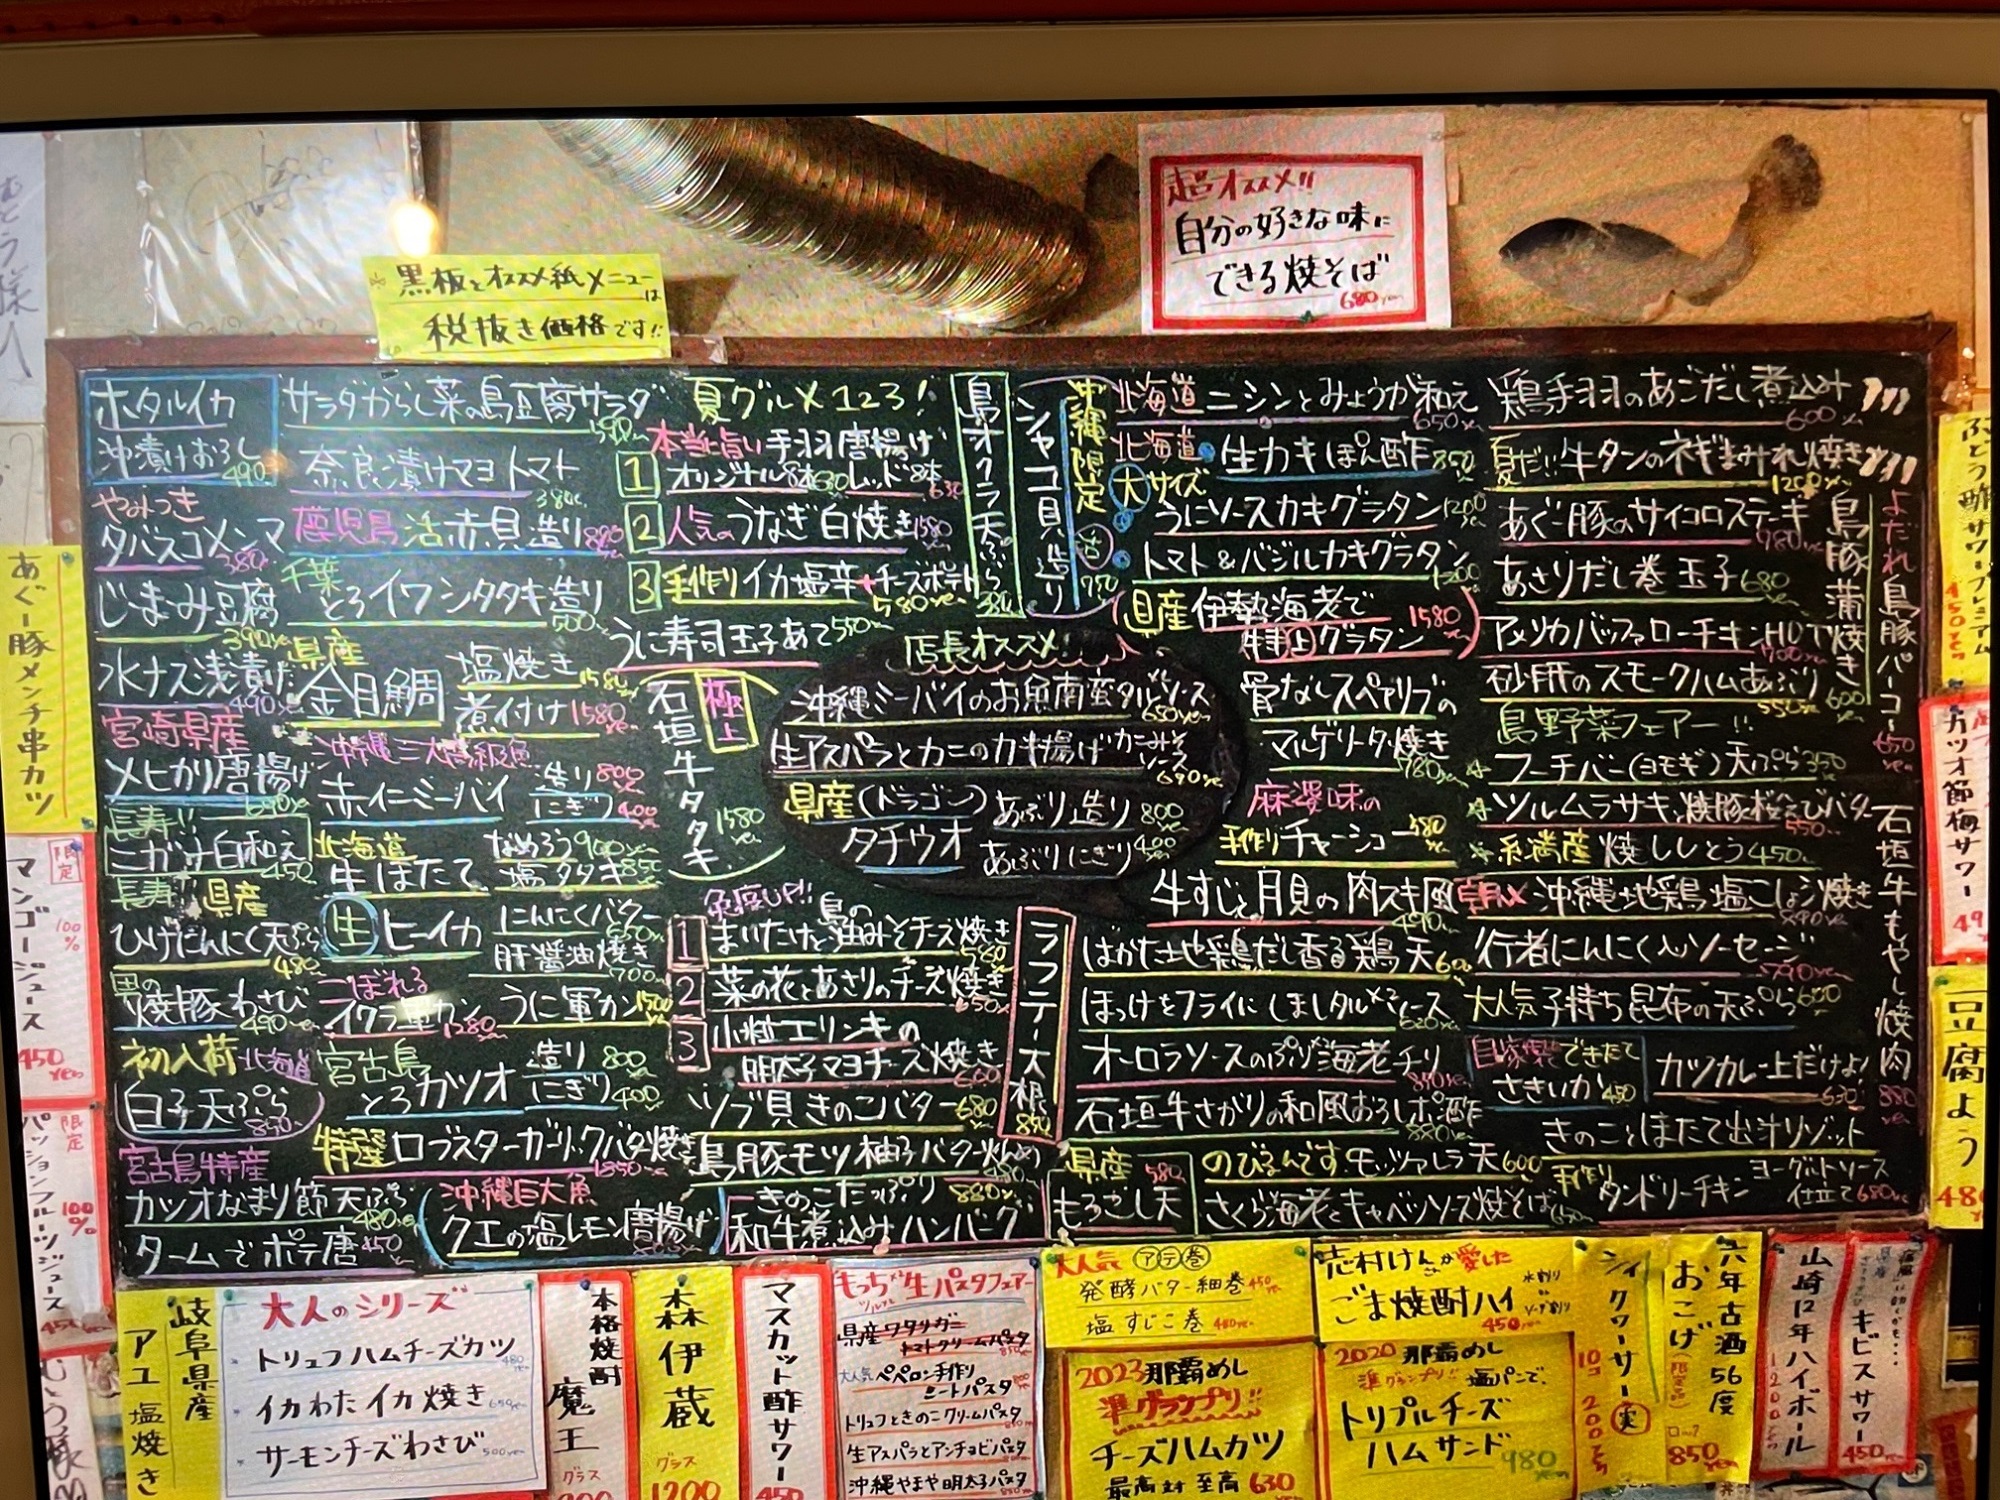 黒板とオススメ紙メニューは
税抜き価格です!!
超オススメ!!
自分の好きな味に
できる焼そば
680yen
ホタルイカ
沖漬けおろし
490
やみつき
タバスコメンマ
380
じーまーみ豆腐
390
水ナス浅漬け
490
宮崎県産
メヒカリ唐揚げ
690
長寿!!
ニガナ白和え
450
長寿 県産
ひげにんにく天ぷら
480
焼豚わさび
490
初入荷 北海道
白子天ぷら
850
宮古島特産
カツオなまり節天ぷら
480
タームでポテ唐
450
サラダからし菜の島豆腐サラダ
590
奈良漬けマヨトマト
380
鹿児島 活赤貝造り
880
千葉
とろイワシタタキ造り
500
県産
金目鯛
塩焼き 1580
煮付け 1580
沖縄三大高級魚
赤仁ミーバイ
造り 800
にぎり 400
北海道
生ほたて
なめろう 900
塩タタキ 850
生 ヒーイカ
にんにくバター
650
肝醤油焼き
700
こぼれる
イクラ軍カン
1580
うに軍カン 1500
宮古島
とろカツオ
造り 800
にぎり 400
特選 ロブスターガーリックバター焼き
1850
沖縄巨大魚
クエの塩レモン唐揚げ
夏グルメ123!
本当に旨い手羽唐揚げ
1 オリジナル8本630 レッド8本630
2 人気のうなぎ白焼き 1580
3 手作りイカ塩辛+チーズポテト
580yen
うに寿司玉子あて 550
島オクラ天ぷら
極上
石垣牛タタキ
1580yen
免疫UP!!
1 まいたけと島の油みそチーズ焼き
580
2 菜の花とあさりのチーズ焼き
650
3 小粒エリンギの
明太子マヨチーズ焼き
ツブ貝きのこバター 680
島豚モツ柚子バター炒め
きのこたっぷり 880
和牛煮込みハンバーグ
店長オススメ!
沖縄ミーバイのお魚南蛮タルソース
650yen
生アスパラとカニのカキ揚げカニみそソース
690yen
県産(ドラゴン)
タチウオ
あぶり造り 800
あぶりにぎり 400
ラフテー大根
850
沖縄限定
シャコ貝造り
活
770
北海道ニシンとみょうが和え
650
北海道
生カキぽん酢 850
大サイズ
うにソースカキグラタン 1200
トマト&バジルカキグラタン
1200
県産 伊勢海老で 1580
特上グラタン
骨なしスペアリブの
マルゲリータ焼き
780
麻婆味の
手作りチャーシュー 580
牛すじと月見の肉スキ風
490
はかた地鶏だし香る鶏天 600
ほっけをフライにしましタルソース
620
オーロラソースのぷり海老チリ
石垣牛さがりの和風おろしポン酢
880
のびるんです。モッツァレラ天 600
さくら海老とキャベツソース焼そば
県産 580
もろこし天
鶏手羽のあごだし煮込み
600
夏だ!! 牛タンのネギまみれ焼き
1200
あぐー豚のサイコロステーキ
980
あさりだし巻玉子 680
アメリカバッファローチキンHOT
700
砂肝のスモークハムあぶり
550
島野菜フェアー!!
フーチバー(ヨモギ)天ぷら 350
ツルムラサキと焼豚桜えびバター
550
糸満産 焼ししとう 450
朝〆 沖縄地鶏塩こしょう焼き
890
行者にんにく入りソーセージ
790
大人気 子持ち昆布の天ぷら 600
自家製できたて
さきいか 450
カツカレー上だけよ!
630
きのことほたて出汁リゾット
手作り タンドリーチキン
ヨーグルトソース
仕立て 680
島豚蒲焼き
600
よだれ島豚パーコー
650yen
石垣牛もやし焼肉
880
あぐー豚メンチ串カツ
限定
マンゴージュース
100%
450yen
限定
パッションフルーツジュース
100%
450
ぶどう酢サワープレミアム
450
カツオ節梅サワー
豆腐よう
岐阜県産
アユ塩焼き
大人のシリーズ
トリュフハムチーズカツ
480
イカわたイカ焼き
650
サーモンチーズわさび
500yen
本格焼酎
魔王
グラス
森伊蔵
グラス
1200
マスカット酢サワー
450
もっちもち生パスタフェアー
県産ワタリガニ
トマトクリームパスタ
大人気 ペペロン手作り
ミートパスタ
トリュフときのこクリームパスタ
生アスパラとアンチョビパスタ
沖縄やまや明太子パスタ
大人気 アテ巻
発酵バター細巻 450
塩すじこ巻 480
2023那覇めし
準グランプリ!!
チーズハムカツ
最高 対 至高 630
志村けんさんが愛した
ごま焼酎ハイ
水割り
ソーダ割り
450yen
2020那覇めし
準グランプリ!! 塩パンで、
トリプルチーズ
ハムサンド
980yen
シィクワーサー実
10コ 200
六年古酒56度
おこげ
ロック
850
山崎12年ハイボール
1200
キビスサワー
450yen